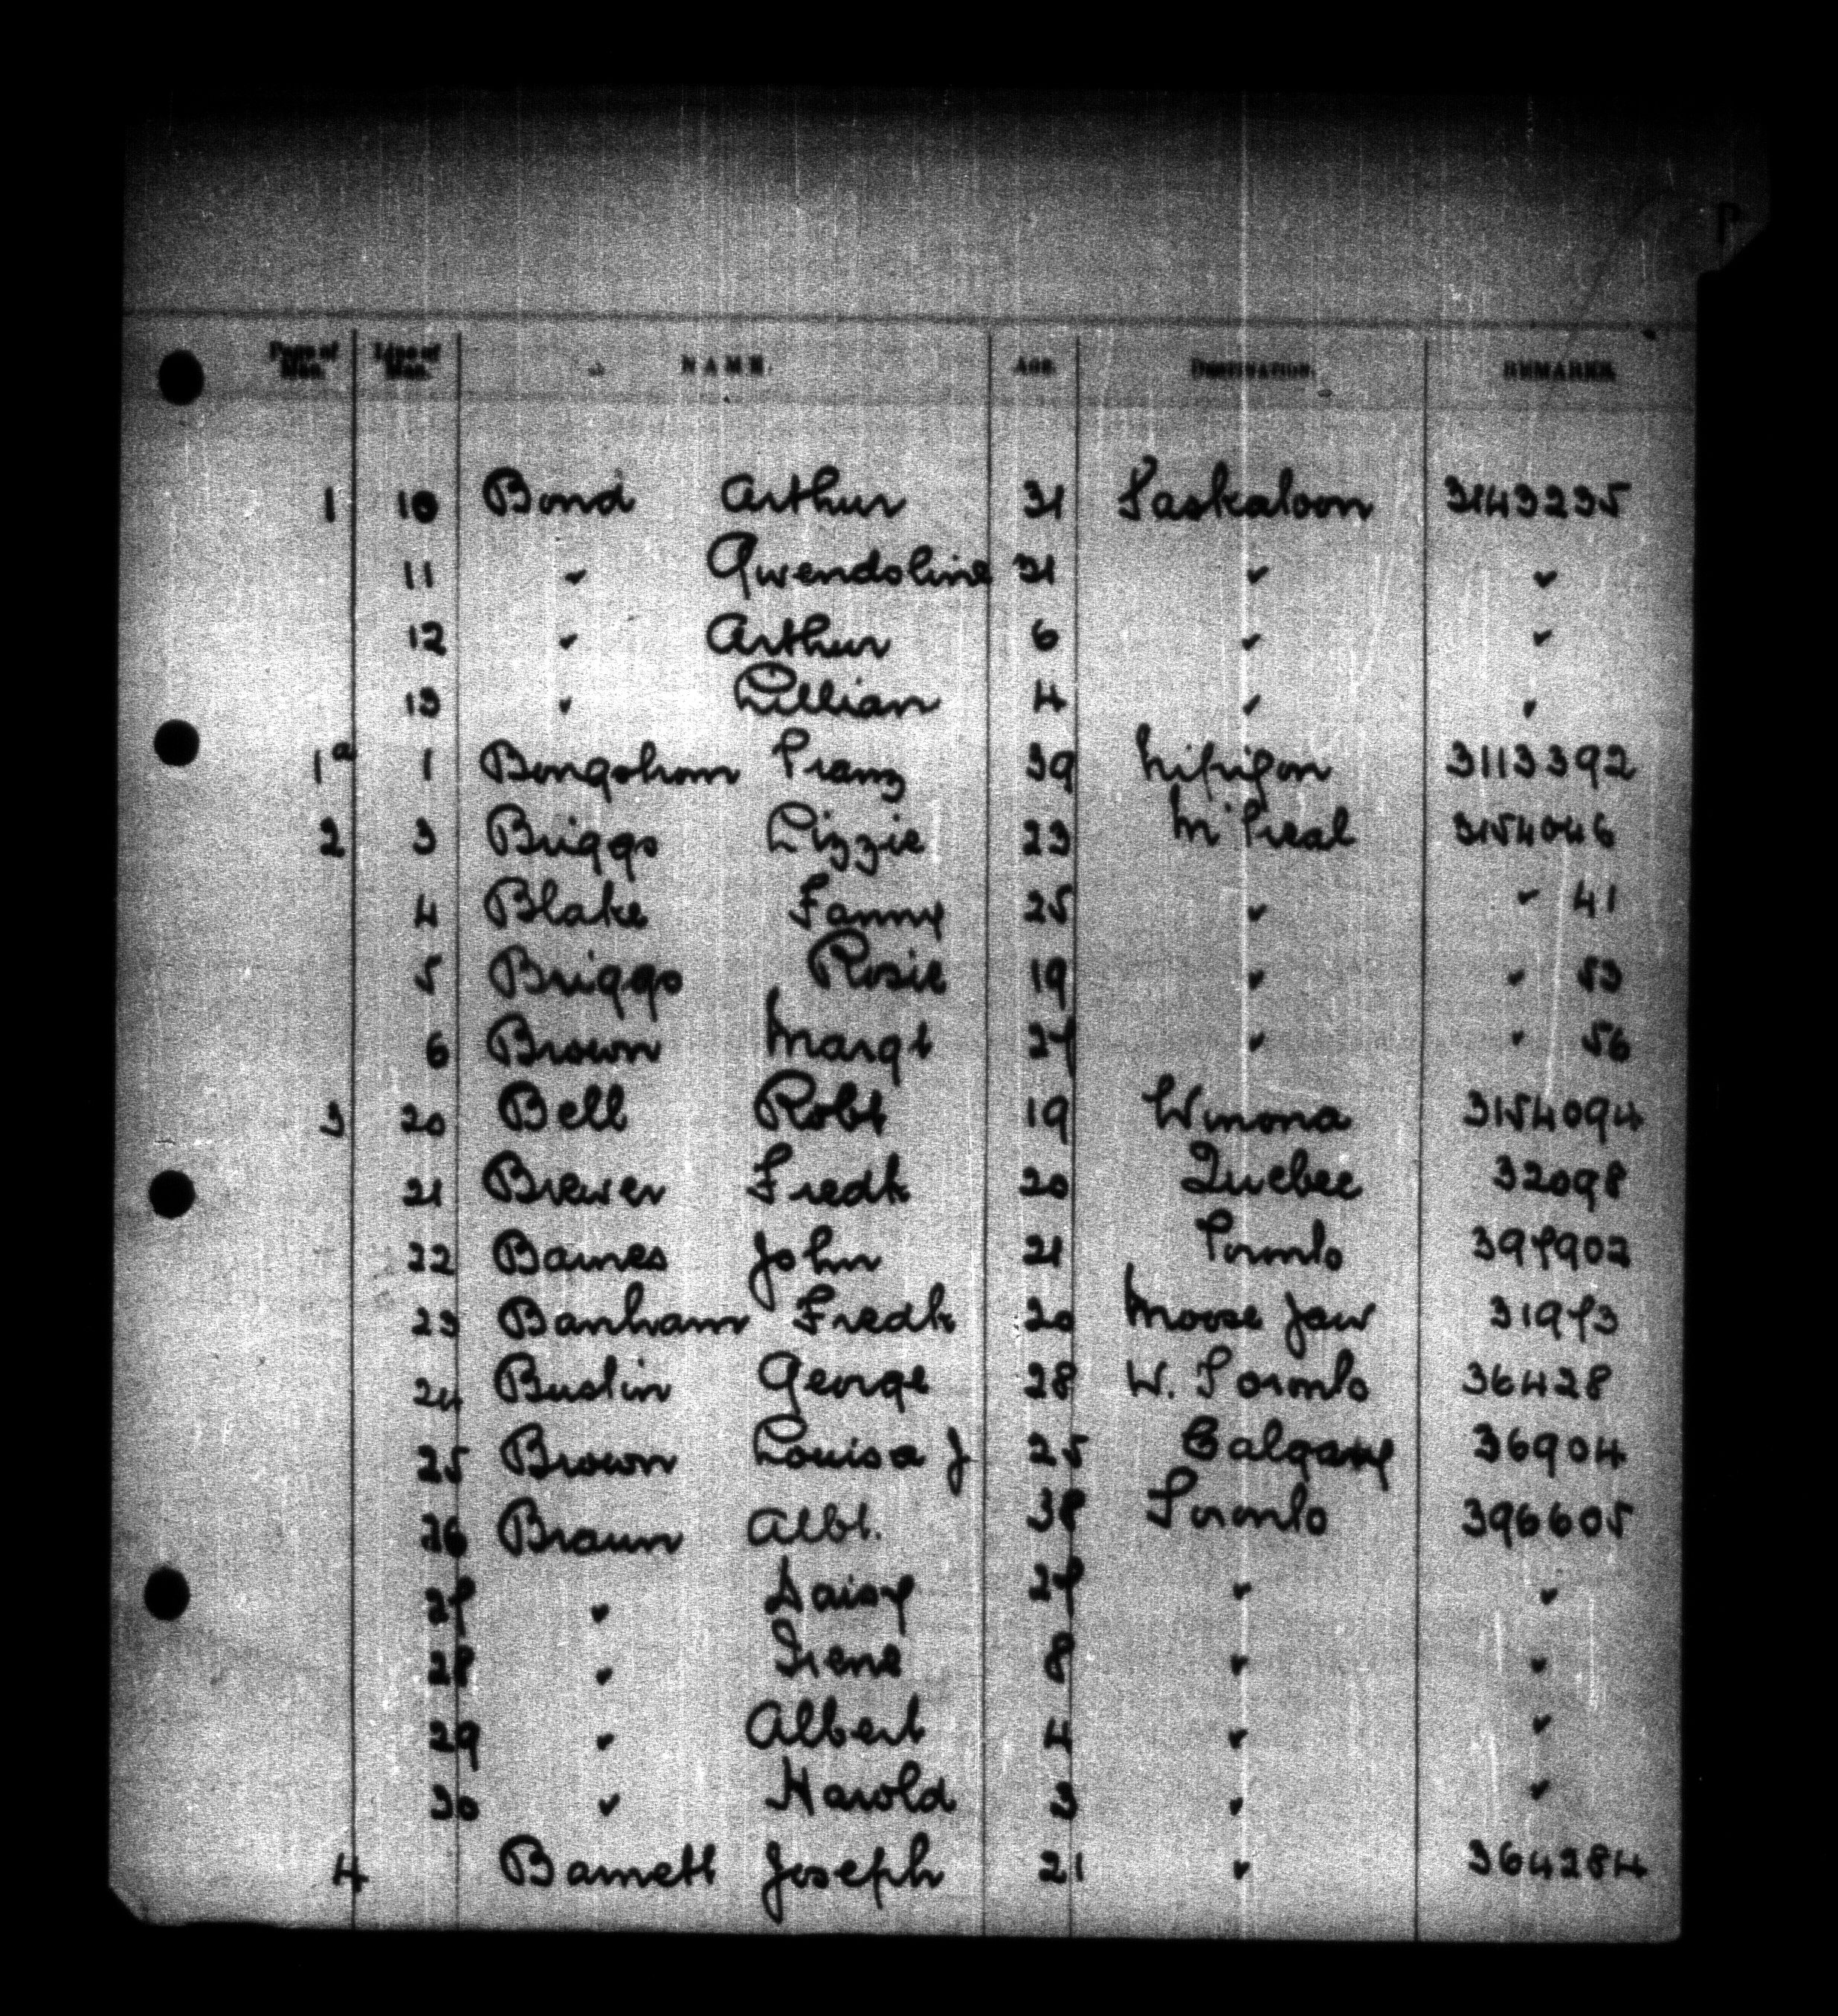 P
Page of Man. Line of Man. NAME. AGE. DESTINATION. REMARKS.
1 10 Bond Arthur 31 Saskatoon 3143235
11 " Gwendoline 31 " "
12 " Arthur 6 " "
13 " Lillian 4 " "
1a 1 Bongstrom Franz 39 Nipigon 3113392
2 3 Briggs Lizzie 23 M'treal 3154046
4 Blake Fanny 25 " " 41
5 Briggs Rosie 19 " " 53
6 Brown Margt 27 " " 56
3 20 Bell Robt 19 Winona 3154094
21 Brewer Fredk 20 Quebec 32098
22 Barnes John 21 Toronto 397902
23 Banham Fredk 20 Moose Jaw 31973
24 Bustin George 28 W. Toronto 36428
25 Brown Louisa J 25 Calgary 36904
26 Braun Albt. 38 Toronto 396605
27 " Daisy 27 " "
28 " Irene 8 " "
29 " Albert 4 " "
30 " Harold 3 " "
4 Barnett Joseph 21 " 364284